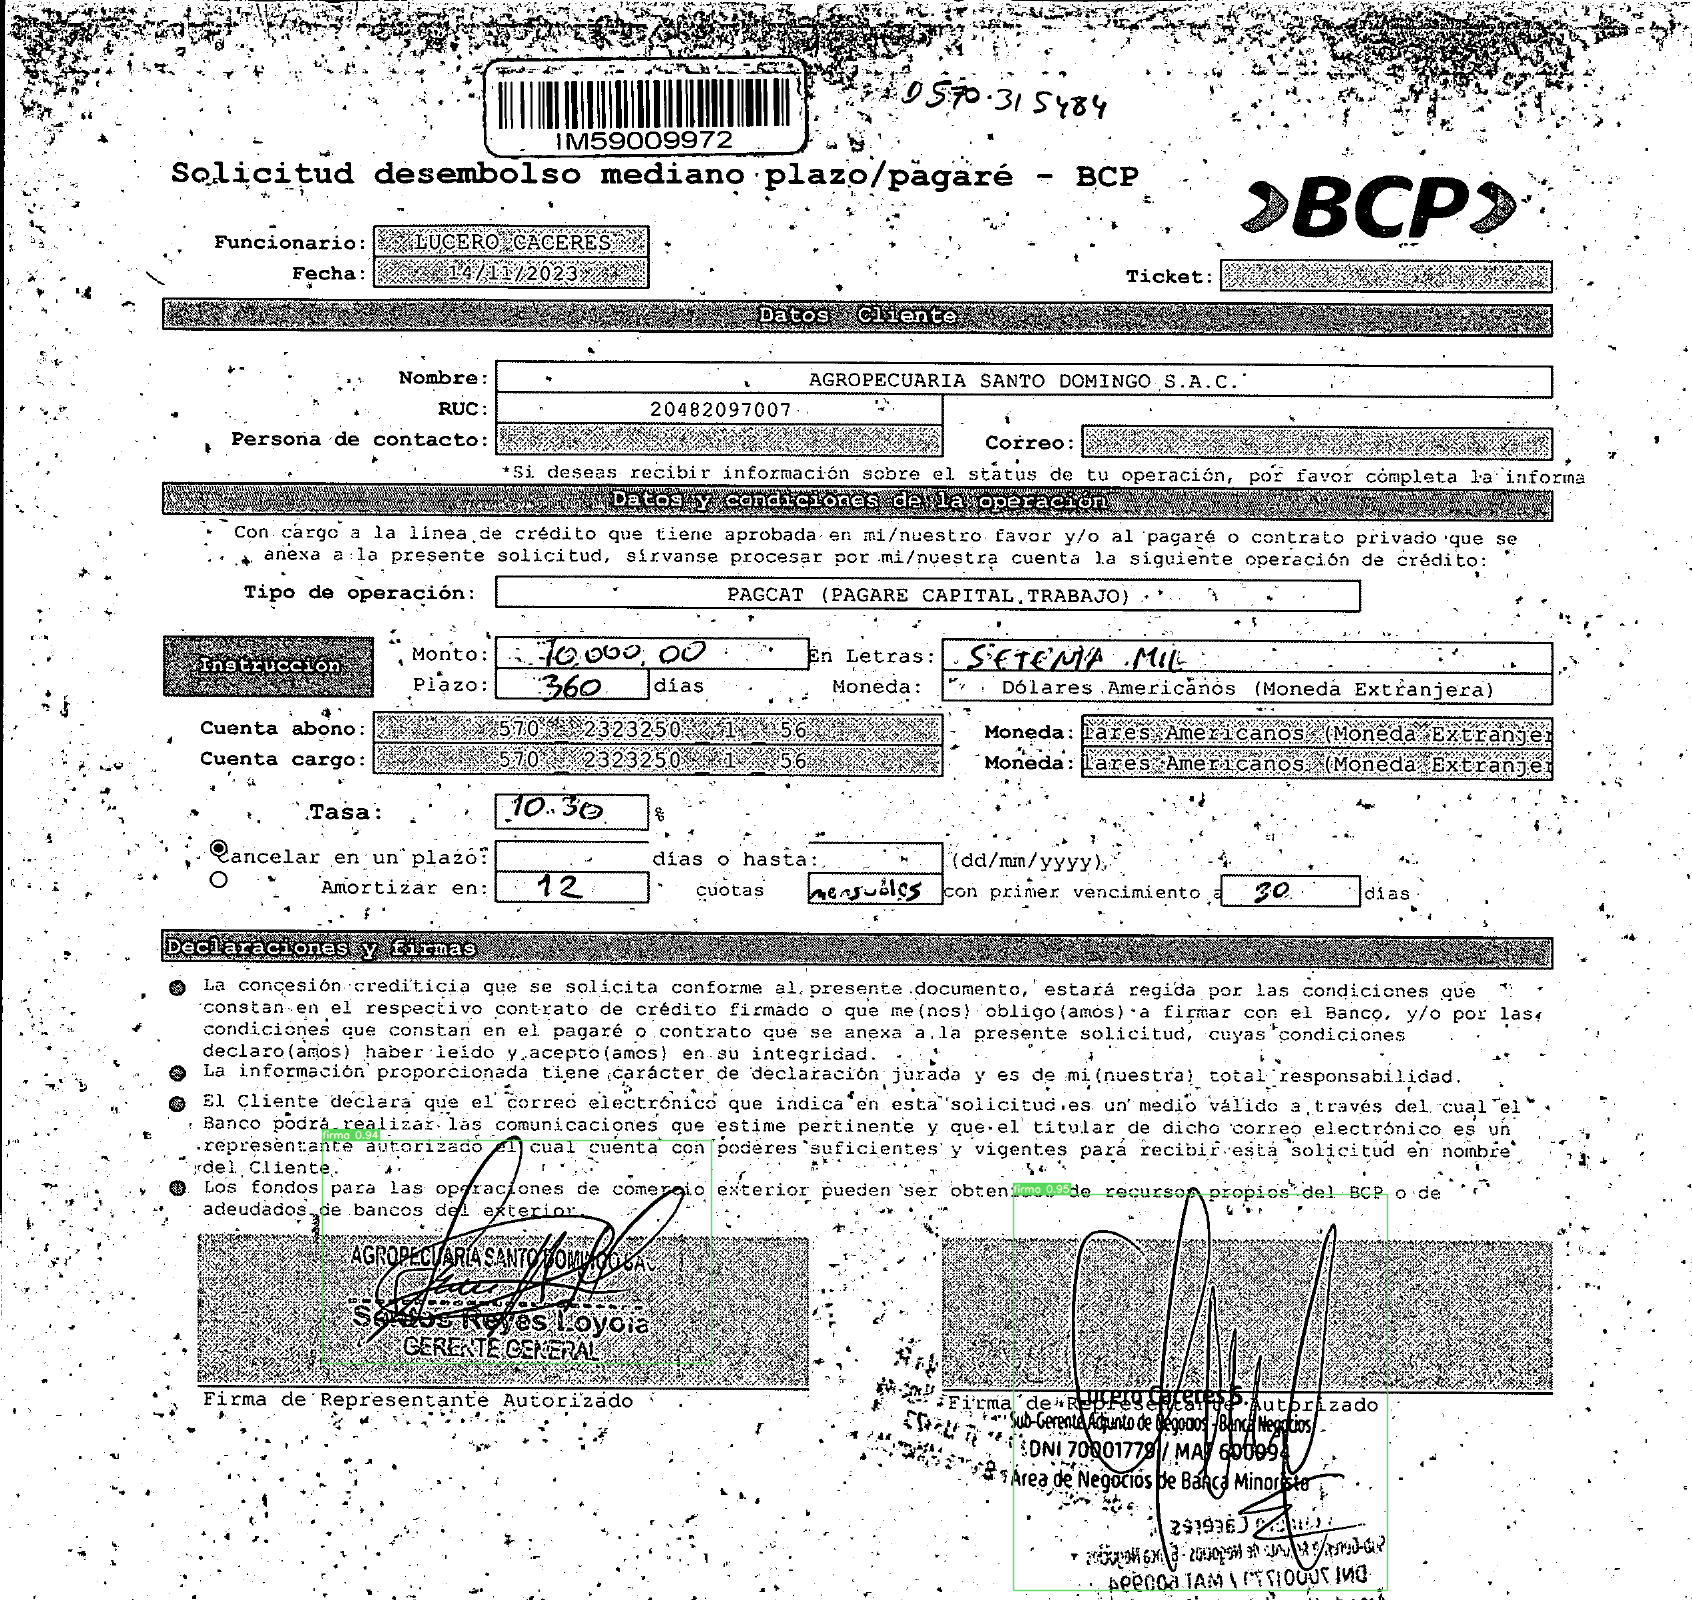 D570-315484
IM59009972
Solicitud desembolso mediano plazo/pagaré - BCP
BCP
Funcionario: LUCERO CACERES
Fecha: 14/11/2023
Ticket:
Datos Cliente
Nombre: AGROPECUARIA SANTO DOMINGO S.A.C.
RUC: 20482097007
Persona de contacto: Correo:
*Si deseas recibir información sobre el status de tu operación, por favor completa la informa
Datos y condiciones de la operación
Con cargo a la línea de crédito que tiene aprobada en mi/nuestro favor y/o al pagaré o contrato privado que se
anexa a la presente solicitud, sírvanse procesar por mi/nuestra cuenta la siguiente operación de crédito:
Tipo de operación: PAGCAT (PAGARE CAPITAL TRABAJO)
Instrucción
Monto: 70,000.00 En Letras: SETENTA MIL
Plazo: 360 días Moneda: Dólares Americanos (Moneda Extranjera)
Cuenta abono: 570 _ 2323250 _ 1 _ 56 Moneda: lares Americanos (Moneda Extranjer
Cuenta cargo: 570 _ 2323250 _ 1 _ 56 Moneda: lares Americanos (Moneda Extranjer
Tasa: 10.30 %
Cancelar en un plazo: días o hasta: (dd/mm/yyyy)
Amortizar en: 12 cuotas mensuales con primer vencimiento a 30 días
Declaraciones y firmas
La concesión crediticia que se solicita conforme al presente documento, estará regida por las condiciones que
constan en el respectivo contrato de crédito firmado o que me(nos) obligo(amos) a firmar con el Banco, y/o por las
condiciones que constan en el pagaré o contrato que se anexa a la presente solicitud, cuyas condiciones
declaro(amos) haber leído y acepto(amos) en su integridad.
La información proporcionada tiene carácter de declaración jurada y es de mi(nuestra) total responsabilidad.
El Cliente declara que el correo electrónico que indica en esta solicitud es un medio válido a través del cual el
Banco podrá realizar las comunicaciones que estime pertinente y que el titular de dicho correo electrónico es un
firma 0.94
representante autorizado el cual cuenta con poderes suficientes y vigentes para recibir esta solicitud en nombre
del Cliente.
Los fondos para las operaciones de comercio exterior pueden ser obten firma 0.95 de recursos propios del BCP o de
adeudados de bancos del exterior
AGROPECUARIA SANTO DOMINGO SAC
Santos Reyes Loyola
GERENTE GENERAL
Firma de Representante Autorizado
Firma de Representante Autorizado
Lucero Caceres S.
Sub-Gerente Adjunto de Negocios - Banca Negocios
DNI 70001779 / MAT 600994
Área de Negocios de Banca Minorista